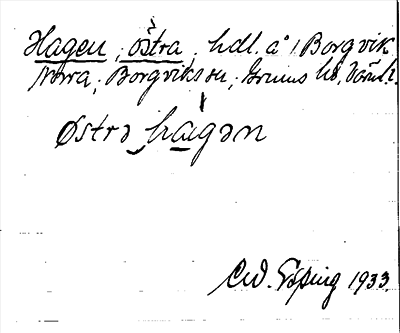 Hagen, östra, hdl. å i Borgvik
Norra, Borgviks sn, Grums hd, Värml.
östrə hagən
Crd. Esping 1933.